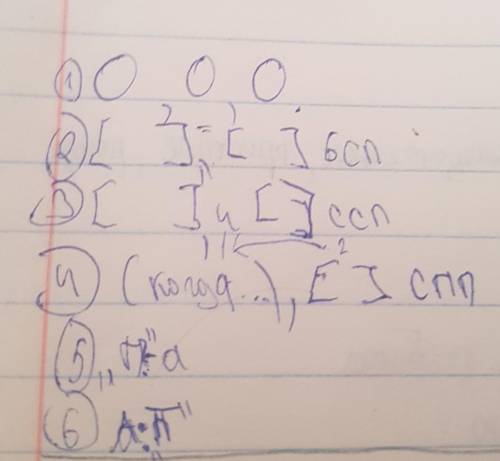 ① O O O
② [ ²] = [¹ ] бсп
③ [ ] и [ ] ссп
④ (когда...), [² ] спп
⑤ „П" а
⑥ А: „П"